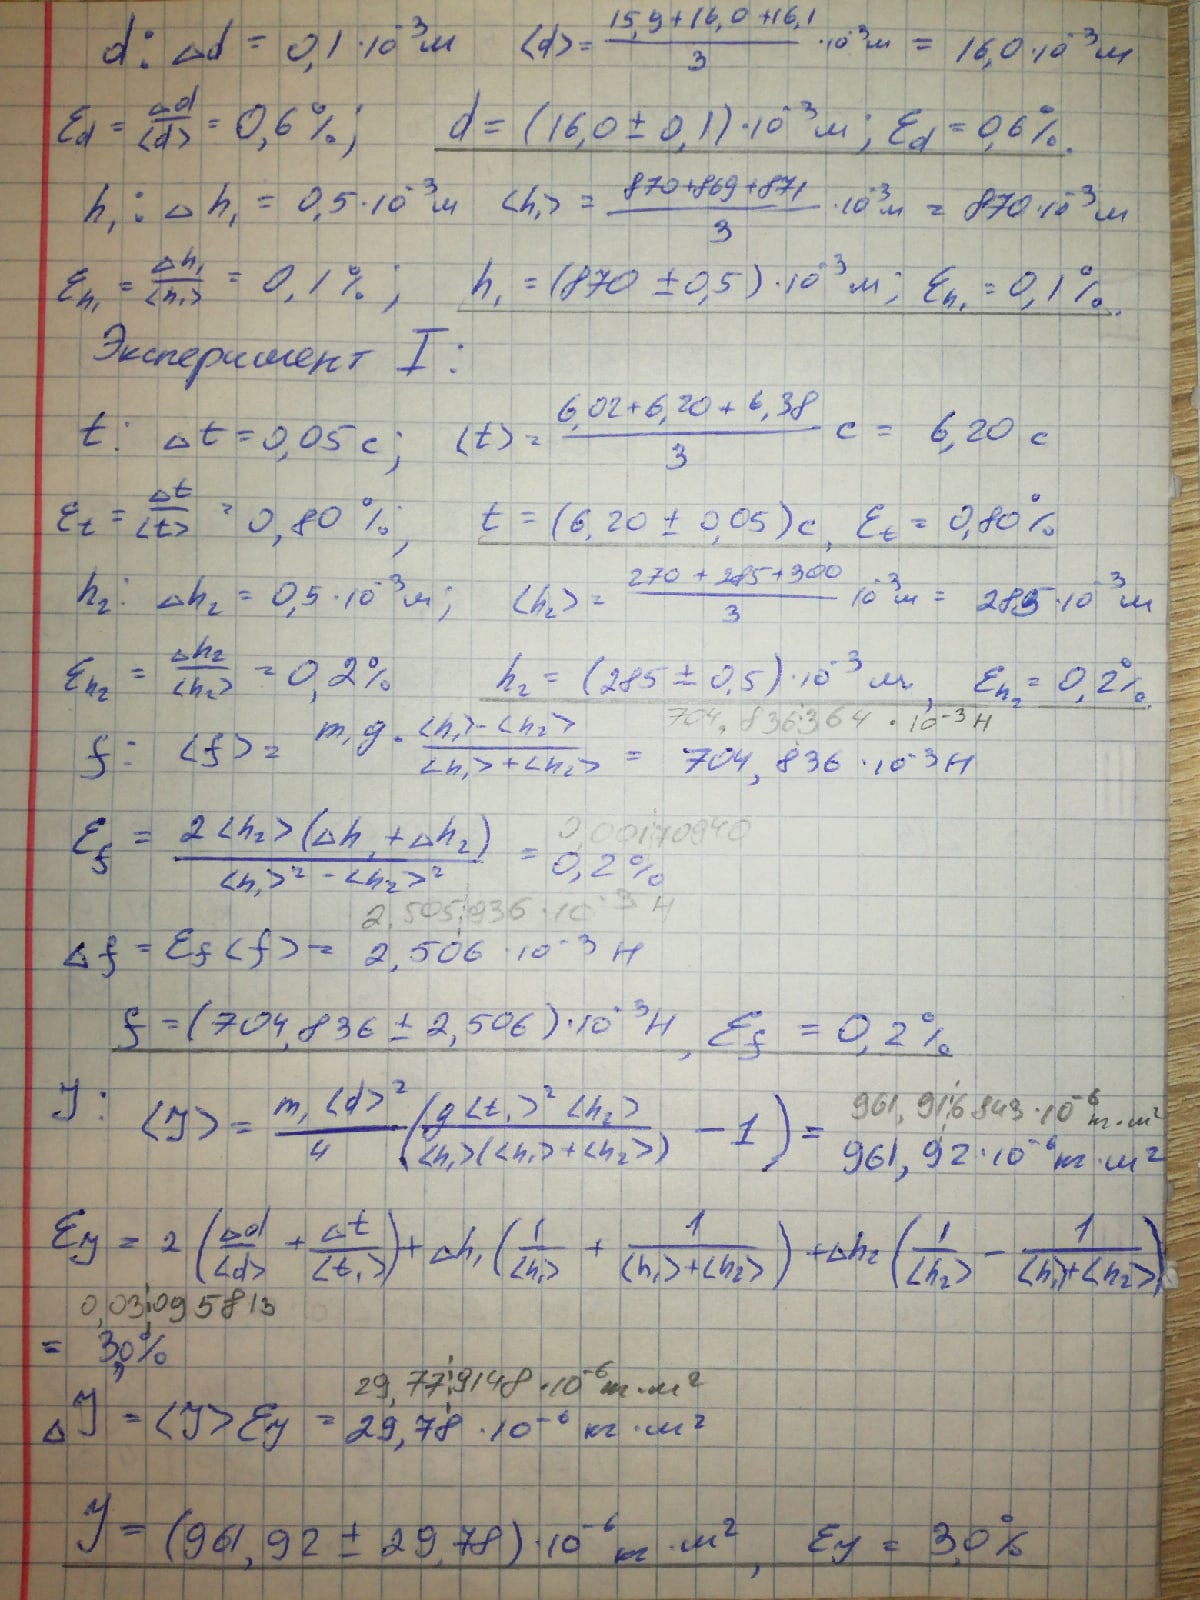 d: Δd = 0,1·10⁻³м <d> = (15,9+16,0+16,1)/3 ·10⁻³м = 16,0·10⁻³м
Ɛd = Δd/<d> = 0,6%; d = (16,0 ± 0,1)·10⁻³м; Ɛd = 0,6%.
h₁: Δh₁ = 0,5·10⁻³м <h₁> = (870+869+871)/3 ·10⁻³м = 870·10⁻³м
Ɛh₁ = Δh₁/<h₁> = 0,1%; h₁ = (870 ± 0,5)·10⁻³м; Ɛh₁ = 0,1%.
Эксперимент I:
t: Δt = 0,05 с; <t> = (6,02+6,20+6,38)/3 с = 6,20 с
Ɛt = Δt/<t> = 0,80%; t = (6,20 ± 0,05)с, Ɛt = 0,80%
h₂: Δh₂ = 0,5·10⁻³м; <h₂> = (270+285+300)/3 10⁻³м = 285·10⁻³м
Ɛh₂ = Δh₂/<h₂> = 0,2% h₂ = (285 ± 0,5)·10⁻³м, Ɛh₂ = 0,2%.
704,836364·10⁻³Н
f: <f> = m₁g · (<h₁>-<h₂>)/(<h₁>+<h₂>) = 704,836·10⁻³Н
0,00170940
Ɛf = 2<h₂>(Δh₁+Δh₂)/(<h₁>²-<h₂>²) = 0,2%
2,505936·10⁻³Н
Δf = Ɛf<f> = 2,506·10⁻³Н
f = (704,836 ± 2,506)·10⁻³Н, Ɛf = 0,2%
961,916843·10⁻⁶ кг·м²
J: <J> = m₁<d>²/4 (g<t₁>²<h₂>/(<h₁>(<h₁>+<h₂>)) - 1) = 961,92·10⁻⁶кг·м²
ƐJ = 2(Δd/<d> + Δt/<t₁>) + Δh₁(1/<h₁> + 1/(<h₁>+<h₂>)) + Δh₂(1/<h₂> - 1/(<h₁>+<h₂>))
0,03095813
= 3,0%
29,779148·10⁻⁶кг·м²
ΔJ = <J>ƐJ = 29,78·10⁻⁶ кг·м²
J = (961,92 ± 29,78)·10⁻⁶кг·м², ƐJ = 3,0%